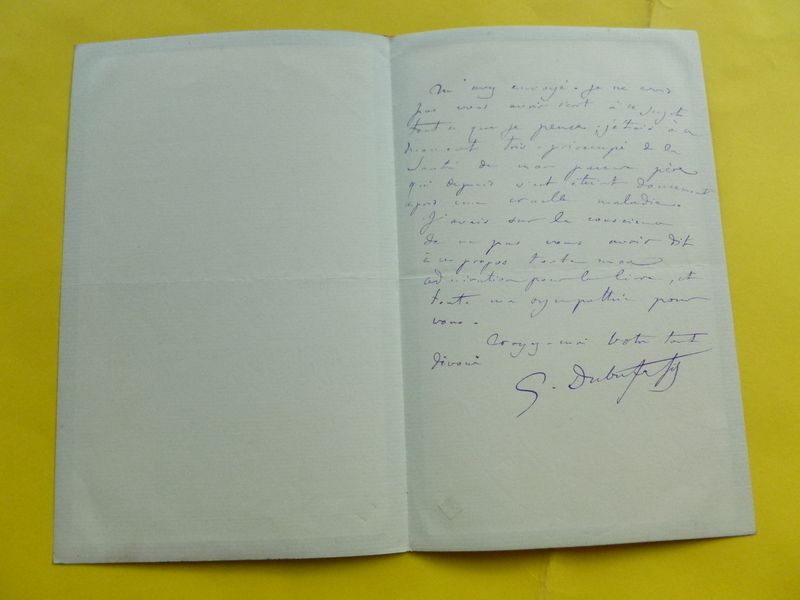 m'avez envoyé. Je ne crois
pas vous avoir écrit à ce sujet
tout ce que je pense; j'étais à ce
moment très préoccupé de la
santé de mon pauvre père
qui depuis s'est éteint doucement
après une cruelle maladie.
J'avais sur la conscience
de ne pas vous avoir dit
à ce propos toute mon
admiration pour le livre, et
toute ma sympathie pour
vous.
Croyez-moi votre tout
dévoué
G. Dubufe fils